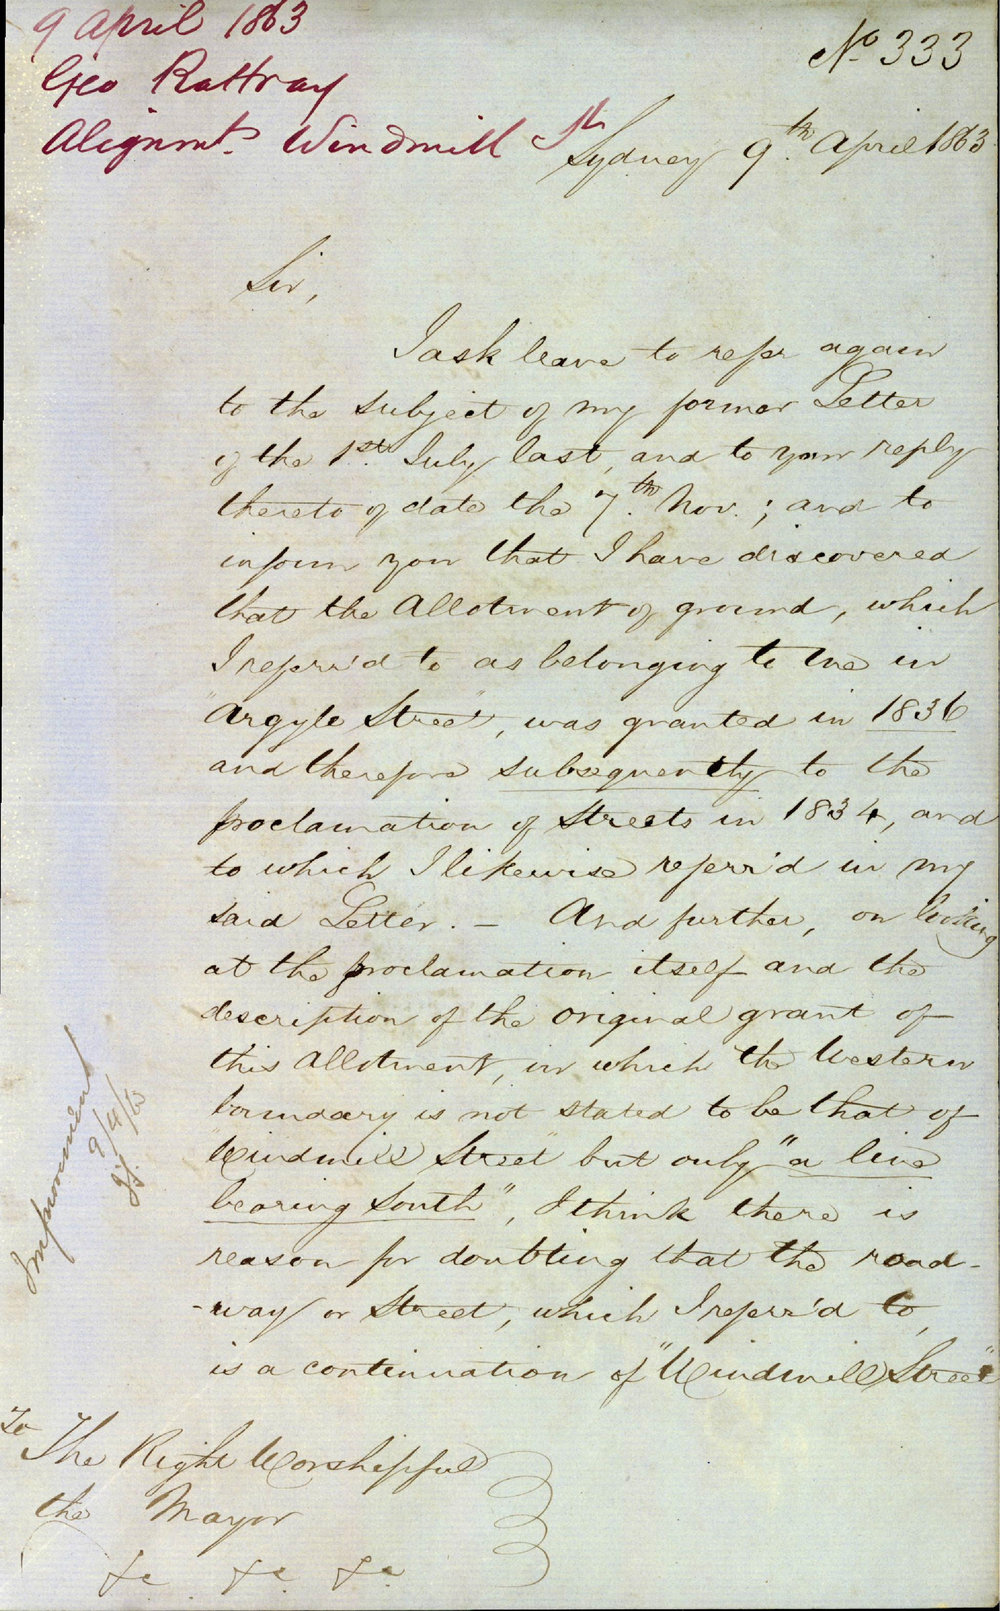 9 April 1863
Geo Rattray
Alignmt. Windmill St
No 333
Sydney 9th. April 1863
Sir,
I ask leave to refer again
to the subject of my former Letter
of the 1st. July last, and to your reply
thereto of date the 7th. Nov.; and to
inform you that I have discovered
that the Allotment of ground, which
I referr'd to as belonging to me in
"Argyle Street", was granted in 1836
and therefore subsequently to the
proclamation of Streets in 1834, and
to which I likewise referr'd in my
said Letter. – And further, on looking
at the proclamation itself and the
description of the original grant of
this Allotment, in which the Western
boundary is not stated to be that of
"Windmill Street" but only "a line
bearing South", I think there is
reason for doubting that the road-
-way or Street, which I referr'd to,
is a continuation of "Windmill Street"
To The Right Worshipful
the Mayor
&c &c &c
Improvement
9/4/63